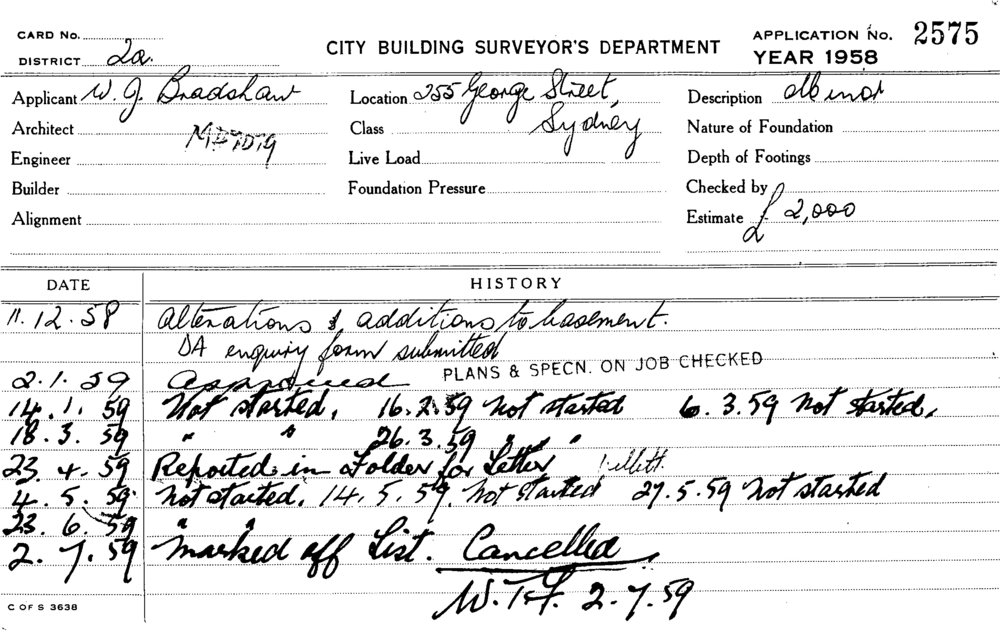 CARD No.
DISTRICT 2a.
CITY BUILDING SURVEYOR'S DEPARTMENT
APPLICATION No. 2575
YEAR 1958
Applicant W. J. Bradshaw
Location 255 George Street,
Sydney
Description Minor
Architect
Class
Nature of Foundation
Engineer
Live Load
Depth of Footings
Builder
Foundation Pressure
Checked by
Alignment
Estimate £ 2,000
DATE HISTORY
11.12.58 Alterations & additions to basement.
DA enquiry form submitted
2.1.59 Approved PLANS & SPECN. ON JOB CHECKED
14.1.59 Not started. 16.2.59 Not started 6.3.59 Not started.
18.3.59 " " 26.3.59 " "
23.4.59 Reported in Folder for Letter
4.5.59 Not started. 14.5.59. Not started 27.5.59 Not started
23.6.59 " "
2.7.59 Marked off List. Cancelled
2.7.59
C OF S 3638